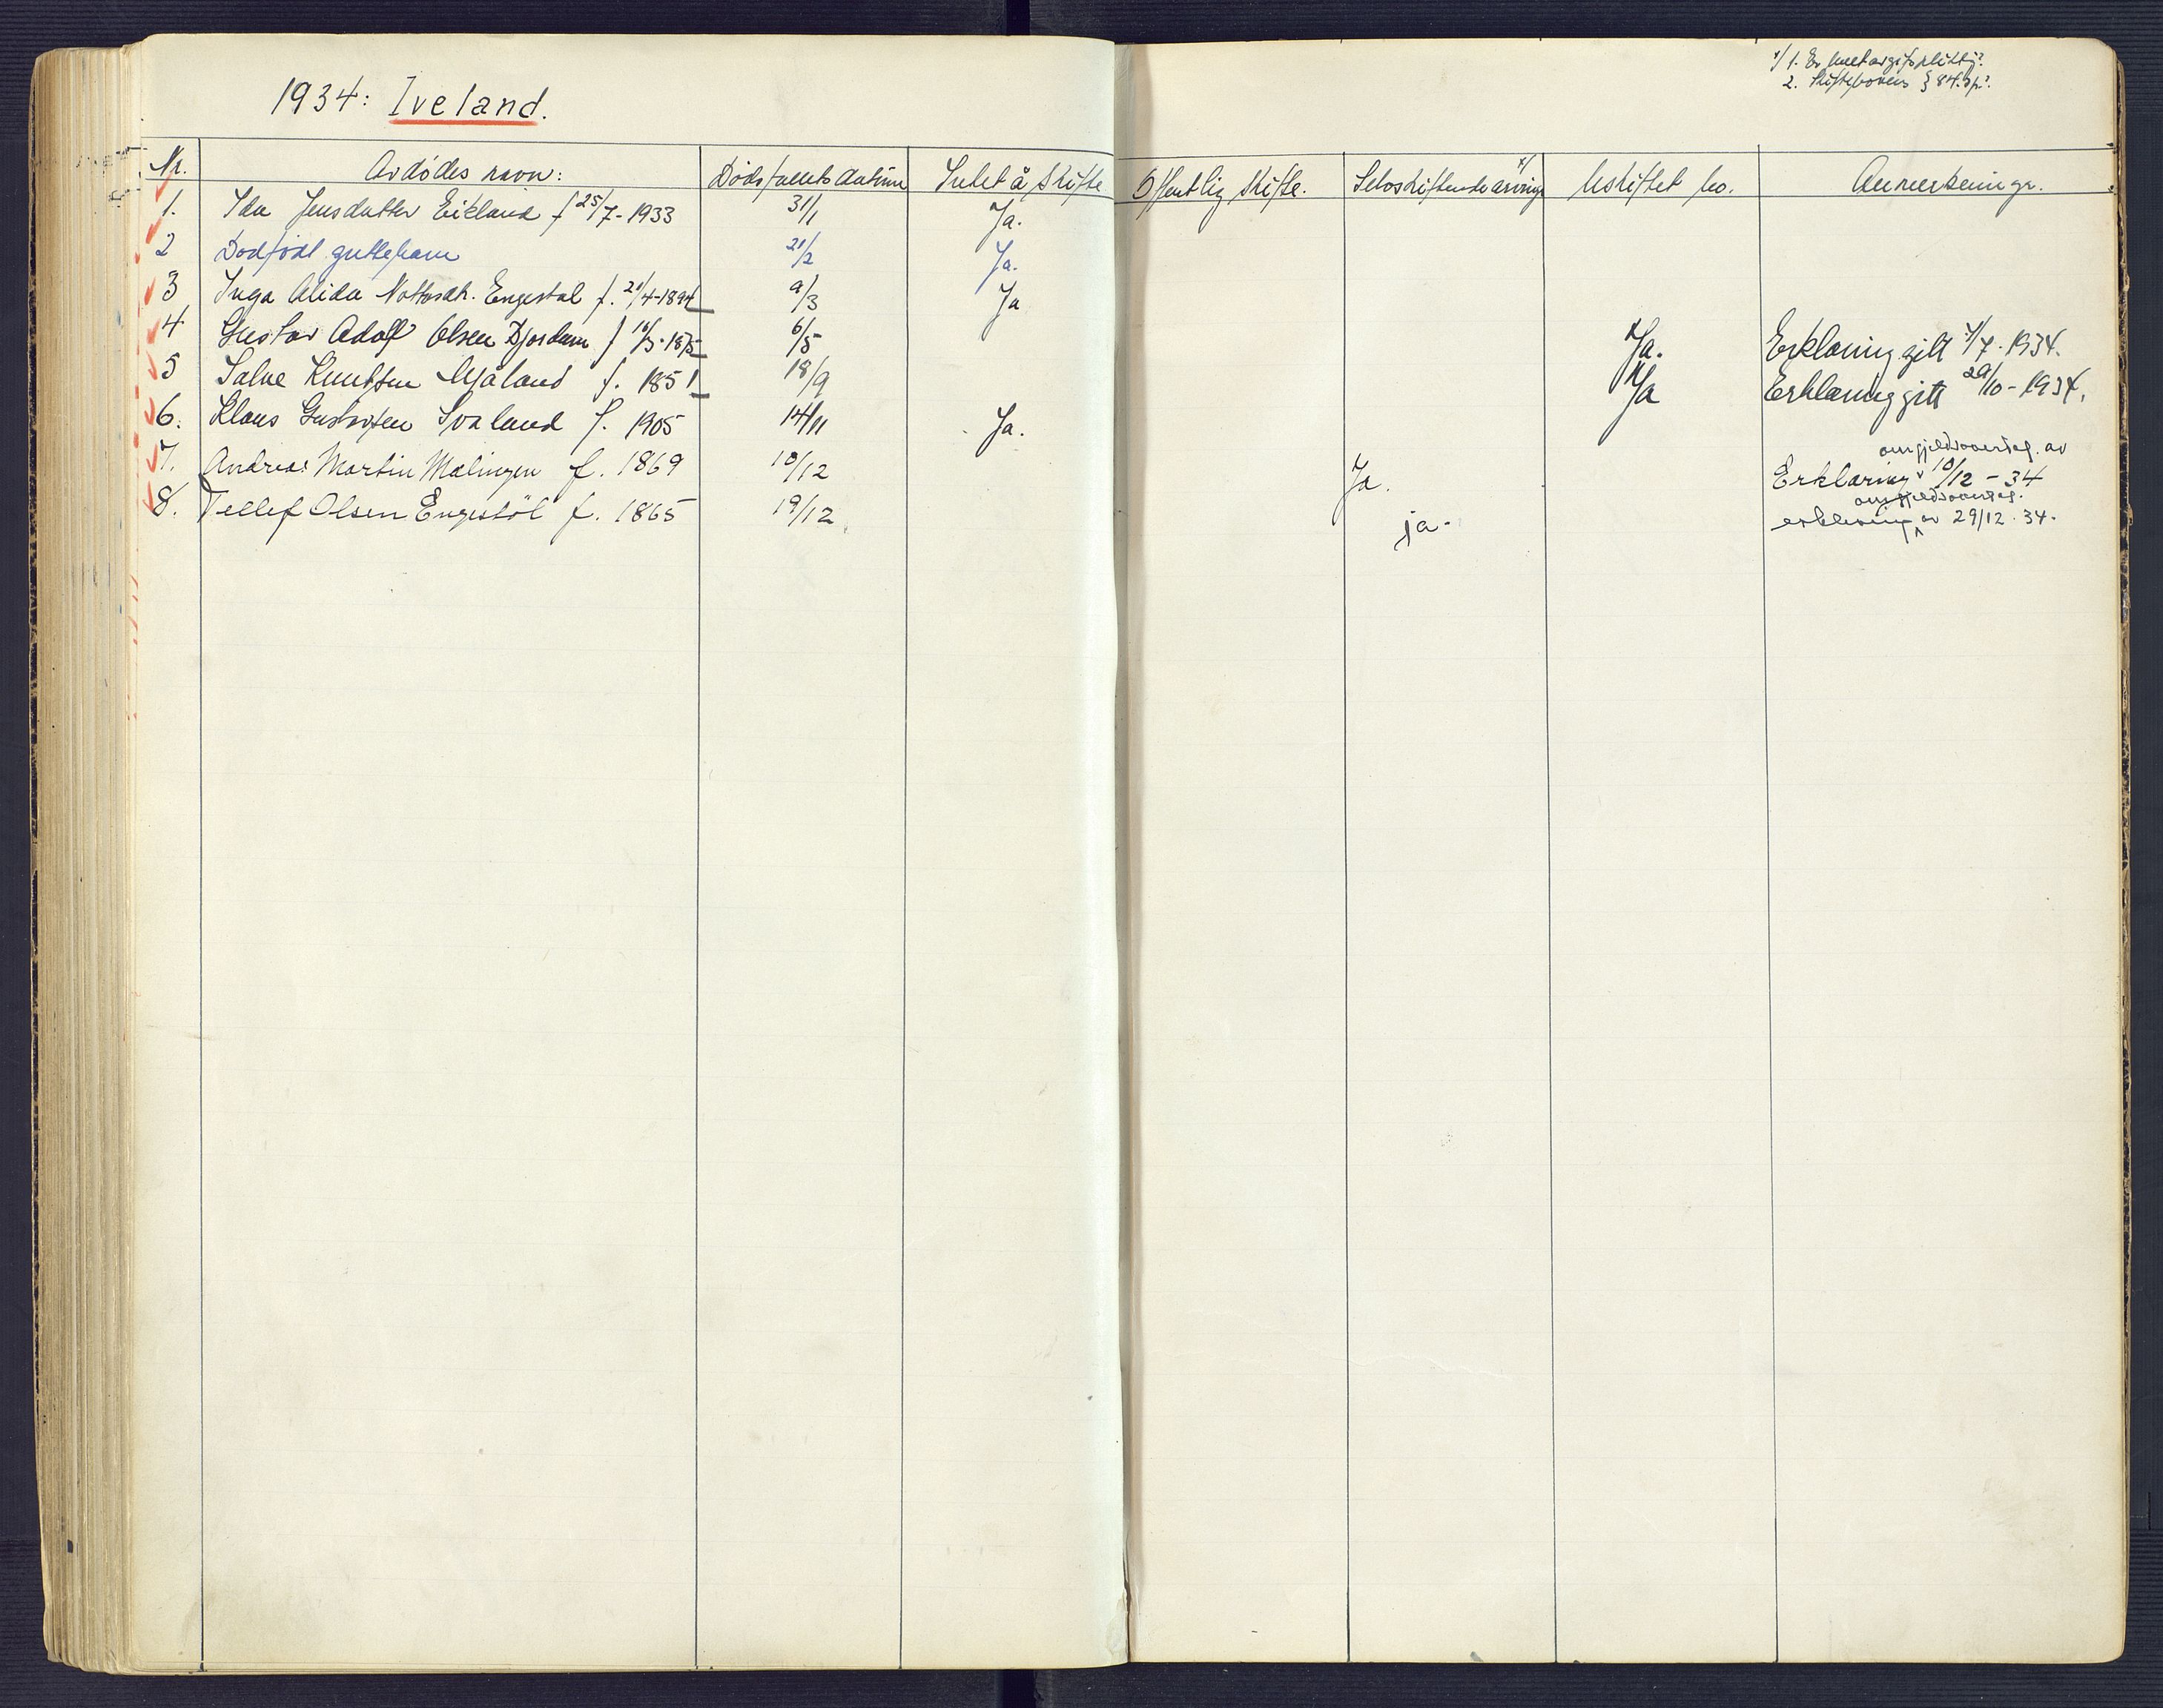 1934: Iveland.
1/ 1. Er
2. Skifteloven § 84.
Nr. Avdødes navn: Dødsfallets datum Intet å skifte Offentlig skifte. Selvskiftende arvinger 1/ Uskiftet bo. Anmerkninger.
1. Ida Jensdatter Eikland f 25/7-1933 31/1 Ja.
2 Dødfødt guttebarn 21/2 Ja.
3 Inga Alida Engestøl f. 21/4-1894 9/3 Ja
4 Gustav Adolf Olsen f 16/3-1875 6/5 Ja. Erklæring gitt 7/7-1934.
5 Salve Knutsen Mjåland f. 1851 18/9 Ja Erklæring gitt 29/10-1934.
6. Klaus Gustavsen Ivaland f. 1905 14/11 Ja.
om gjeldsovertag. av
7. Andreas Martin Mølingen f. 1869 10/12 Ja. Erklæring 10/12-34
om gjeldsovertag.
8. Tellef Olsen Engestöl f. 1865 19/12 ja. erklæring av 29/12.34.